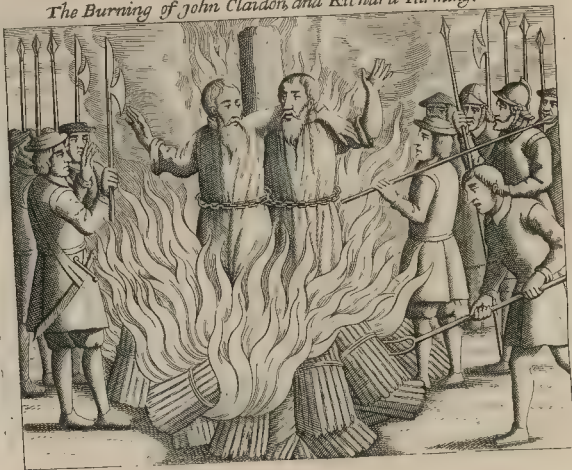 The Burning of John Claidon, and Richard Turming.